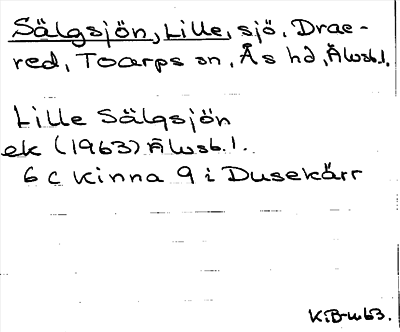 Sälgsjön, Lille, sjö, Drae-
red, Toarps sn, Ås hd, Älvsb.l.
Lille Sälgsjön
ek (1963) Älvsb.l.
6 C Kinna 9 i Dusekärr